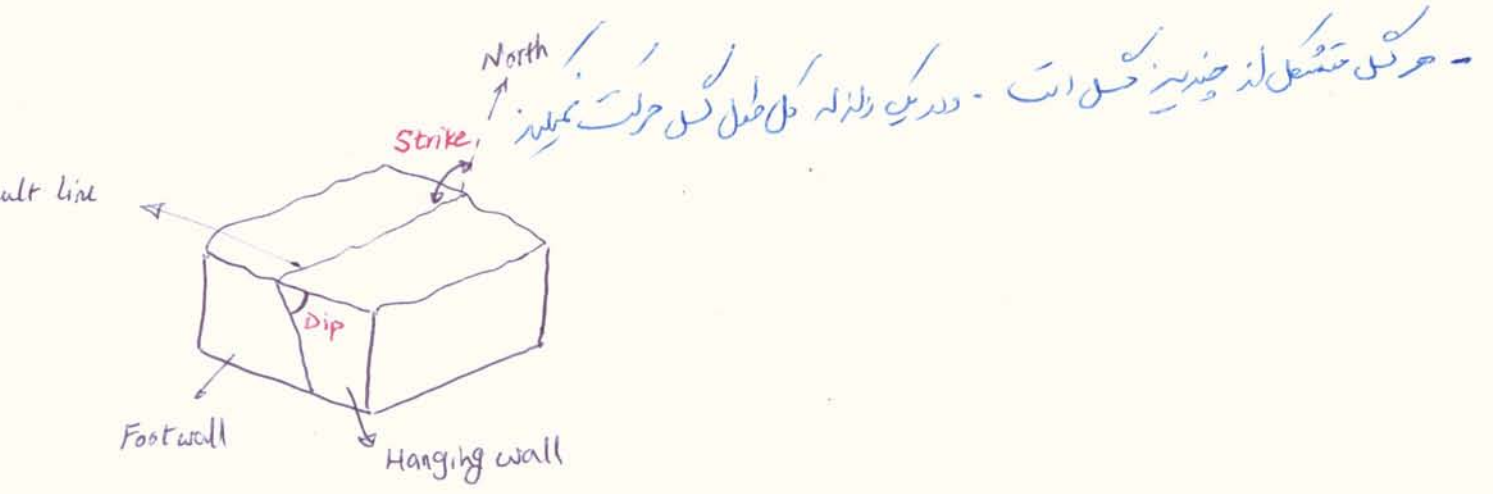 - هر گسل متشکل از چندین گسل است - و در یک زلزله کل طول گسل حرکت نمیکند
North
Strike
ult line
Dip
Footwall
Hanging wall